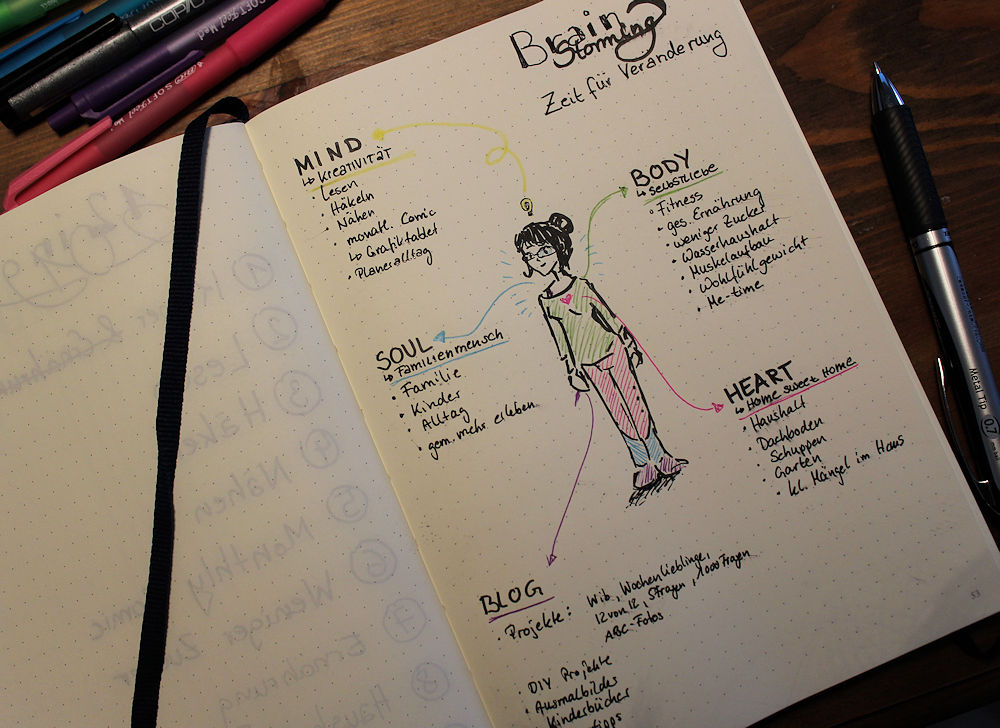 Brain
Storming
Zeit für Veränderung
MIND
↳ Kreativität
• Lesen
• Häkeln
• Nähen
• monatl. Comic
↳ Grafiktablet
• Planeralltag
BODY
↳ Selbstliebe
• Fitness
• ges. Ernährung
• weniger Zucker
• Wasserhaushalt
• Muskelaufbau
• Wohlfühlgewicht
• Me-time
SOUL
↳ Familienmensch
• Familie
• Kinder
• Alltag
• gem. mehr erleben
HEART
↳ Home sweet Home
• Haushalt
• Dachboden
• Schuppen
• Garten
• kl. Mängel im Haus
BLOG
• Projekte: Wib, Wochenlieblinge,
12 von 12, 5 Fragen, 1000 Fragen
ABC-Fotos
• DIY Projekte
• Ausmalbilder
• Kinderbücher
tipps
53
Metal Tip 07
SOFT Feel Med
SOFT Feel Med